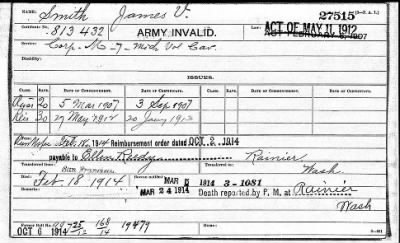 NAME: Smith James V. 27515
Certificate No. 813432 ARMY INVALID. Law: ACT OF MAY 11 1912
ACT OF FEBRUARY 6, 1907
Service: Corp. M-7-Mo. Vol Cav.
Disability:
ISSUES.
CLASS. RATE. DATE OF COMMENCEMENT. DATE OF CERTIFICATE. CLASS. RATE. DATE OF COMMENCEMENT. DATE OF CERTIFICATE.
20 5 Mar 1907 3 Sep 1907
30 27 May 1912 20 1913
Feb. 18, 1914 Reimbursement order dated OCT 2 1914
payable to Ellen Rainier
Transferred from: Transferred to: Wash.
San Francisco
Feb 18 1914 MAR 1914 3-1081
MAR 24 1914 Death reported by P. M. at Rainier
Wash
OCT 6 1914 19479